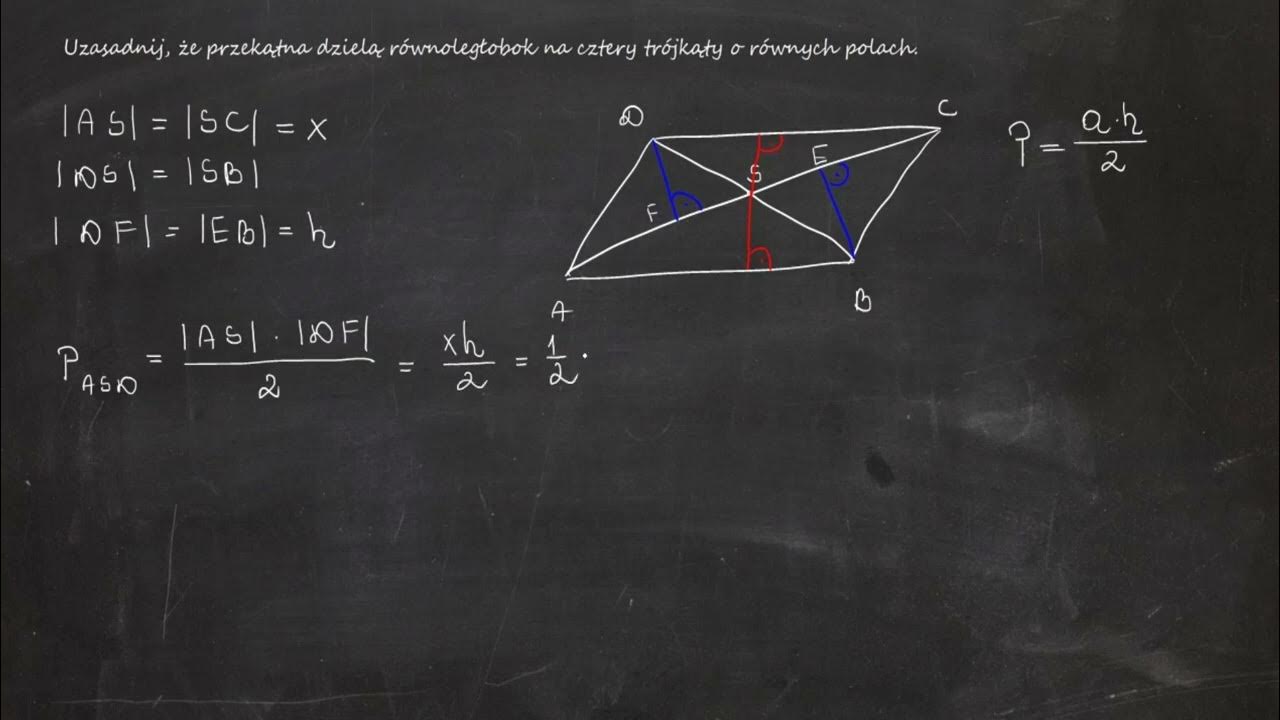 Uzasadnij, że przekątna dzielą równoległobok na cztery trójkąty o równych polach.
|AS| = |SC| = x
|DS| = |SB|
|DF| = |EB| = h
D
C
S
E
F
A
B
P = a·h / 2
P ASD = |AS| · |DF| / 2 = xh / 2 = 1/2 ·